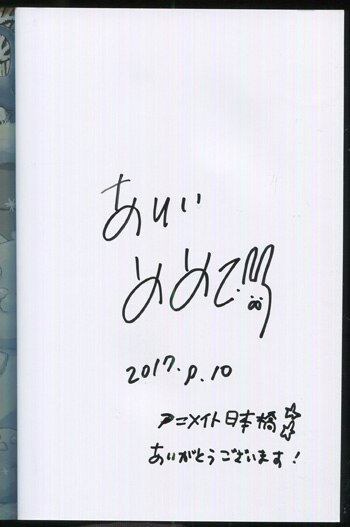 ありい
めめこ
2017.9.10
アニメイト日本橋
ありがとうございます!